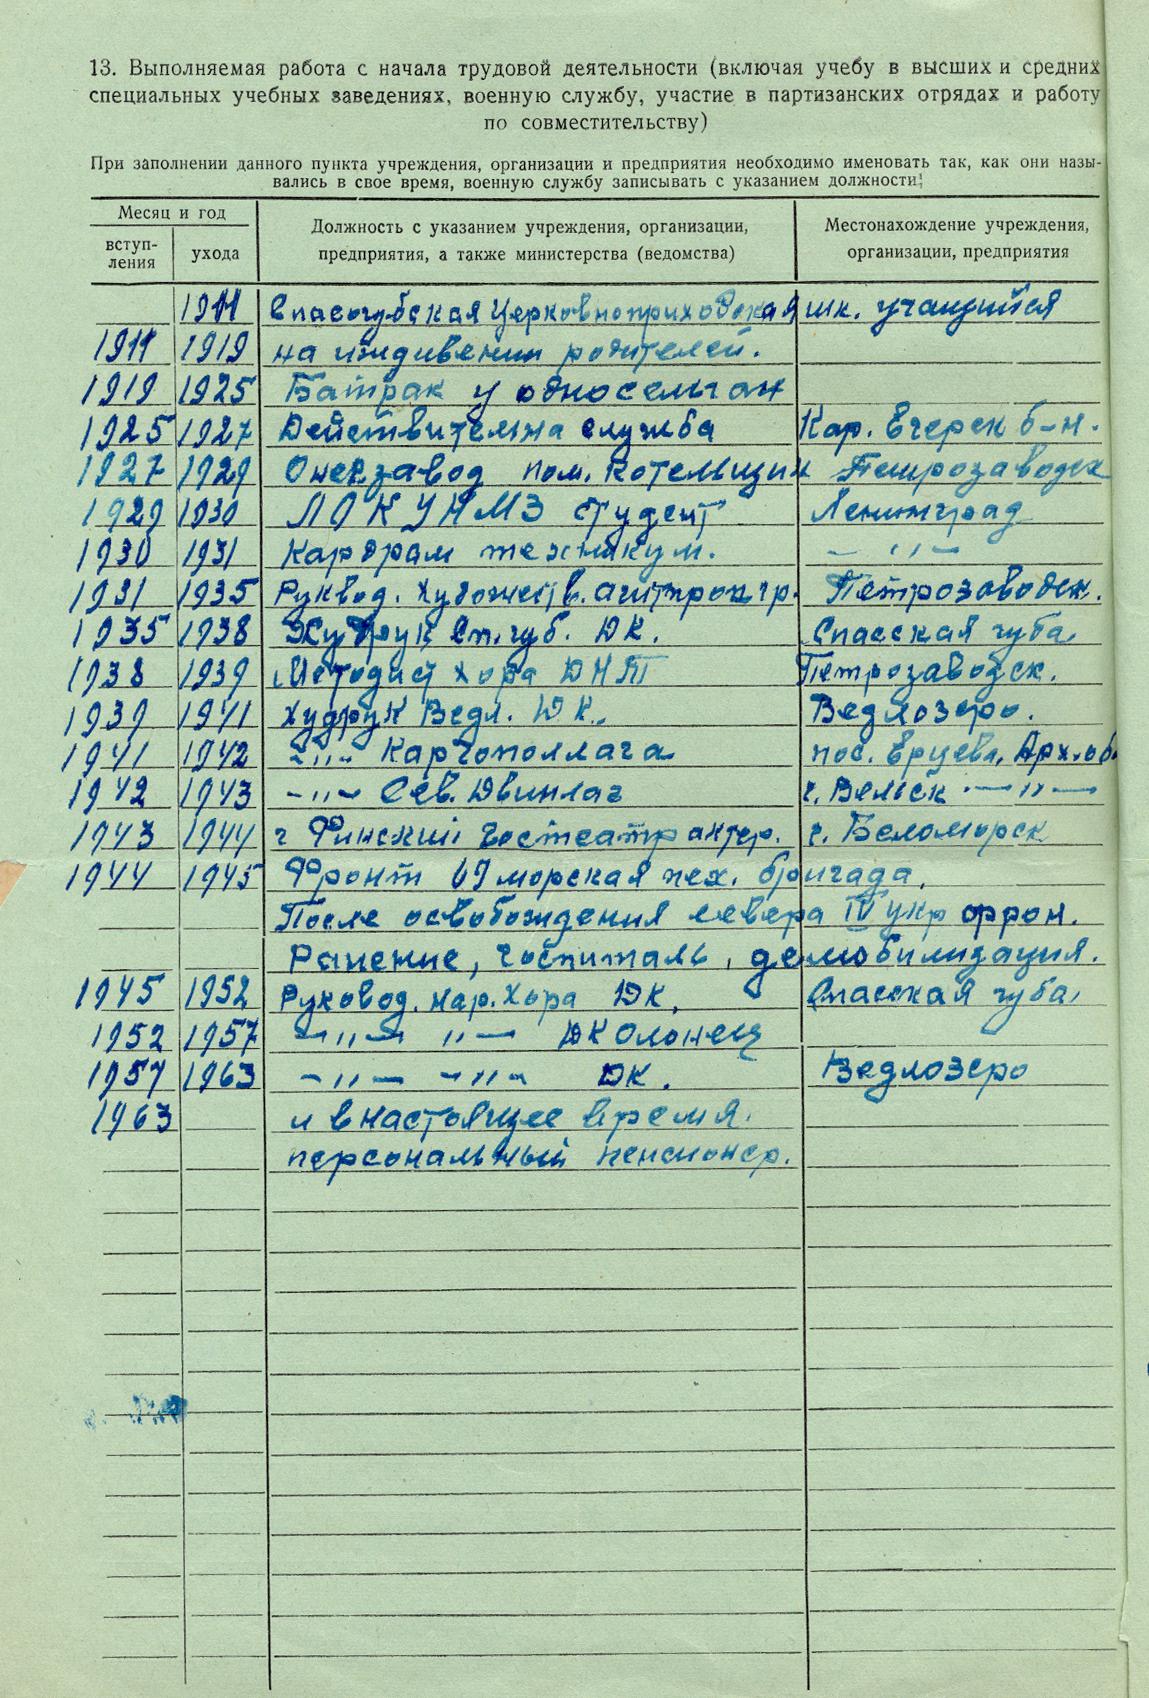 13. Выполняемая работа с начала трудовой деятельности (включая учебу в высших и средних
специальных учебных заведениях, военную службу, участие в партизанских отрядах и работу
по совместительству)
При заполнении данного пункта учреждения, организации и предприятия необходимо именовать так, как они назы-
вались в свое время, военную службу записывать с указанием должности.
Месяц и год
вступ-
ления
ухода
Должность с указанием учреждения, организации,
предприятия, а также министерства (ведомства)
Местонахождение учреждения,
организации, предприятия
1911 Спасогубская Церковноприходская шк. учащийся
1911 1919 на иждивении родителей.
1919 1925 Батрак у односельчан
1925 1927 Действительна служба Кар. Егерск б-н.
1927 1929 Онегзавод пом. Котельщик Петрозаводск
1929 1930 ЛОКУНМЗ студент Ленинград
1930 1931 Кардрам техникум. – " –
1931 1935 Руквод. Художеств. агитпроп гр. Петрозаводск.
1935 1938 Худрук Сп. губ. ДК. Спасская губа
1938 1939 Методист хора ДНТ Петрозаводск.
1939 1941 Худрук Ведл. ДК. Ведлозеро.
1941 1942 – " – Каргополлага пос. Ерцева, Арх. об
1942 1943 – " – Сев. Двинлаг г. Вельск – " –
1943 1944 г Финский Гостеатр актер. г. Беломорск
1944 1945 Фронт 69 морская пех. бригада.
После освобождения севера IV укр фрон.
Ранение, госпиталь, демобилизация.
1945 1952 Руковод. нар. хора ДК. Спасская губа,
1952 1957 – " – " – ДК Олонец
1957 1963 – " – – " – ДК. Ведлозеро
1963 и в настоящее время.
персональный пенсионер.